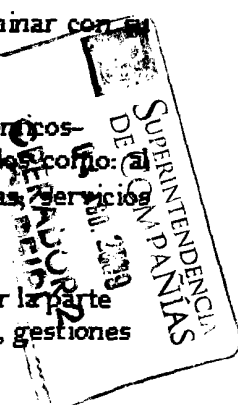 minar con su
micos-
dos como: al
as, servicios
r la parte
, gestiones
SUPERINTENDENCIA
DE COMPAÑÍAS
OPERADOR 2